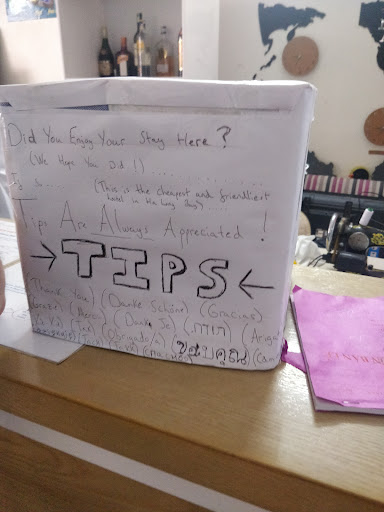 Did You Enjoy Your Stay Here?
(We Hope You Did!)..................
If So.... (This is the cheapest and friendliest
hotel in the
Tips Are Always Appreciated!
→ TIPS ←
(Thank You) (Danke Schöne) (Gracias)
(Merci) (Danke Je) (תודה)
(Tak) (Obrigado) (ขอบคุณ)